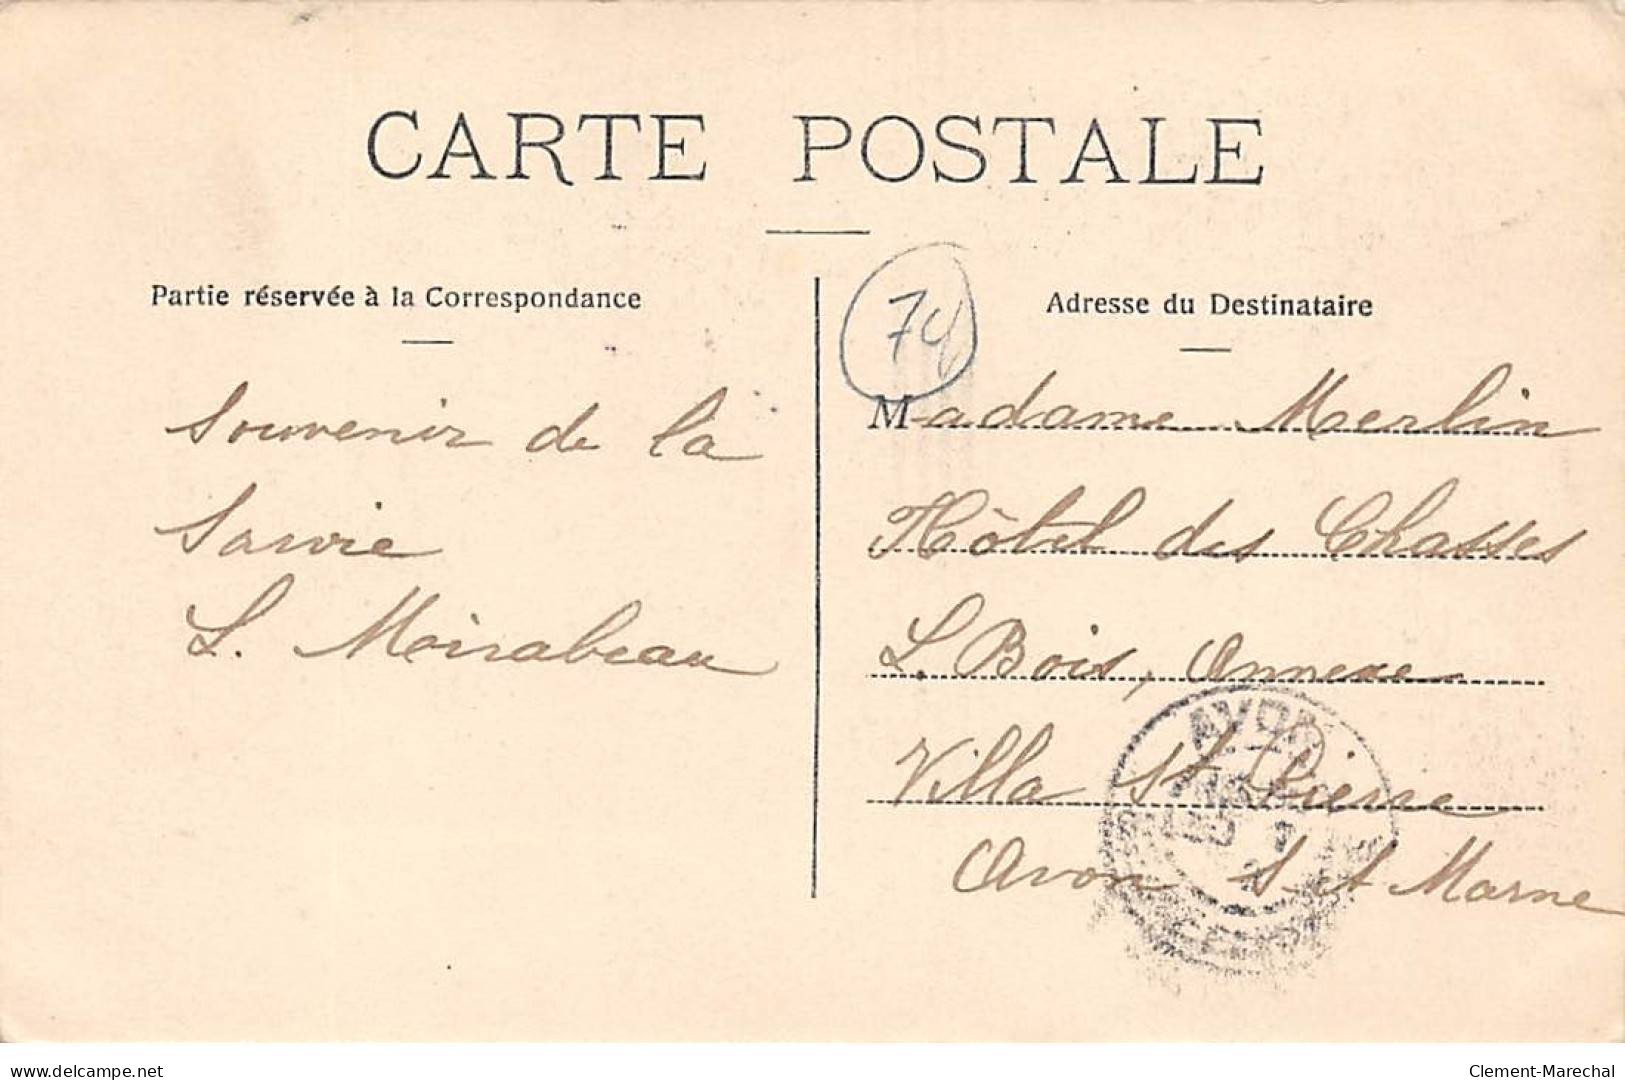 CARTE POSTALE
Partie réservée à la Correspondance
Adresse du Destinataire
74
Souvenir de la
Savoie
L. Mirabeau
Madame Merlin
Hôtel des Chasses
L. Bois, Annexe
Villa St Pierre
Avon S et Marne
AVON
www.delcampe.net
Clement-Marechal